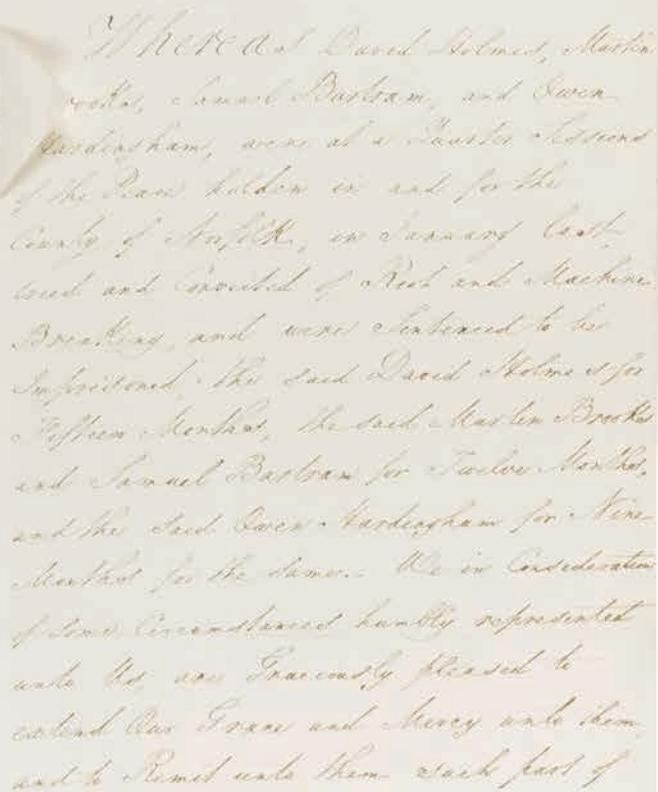 Whereas David Holmes, Martin
Brookes, Samuel Bartram, and Owen
Hardingham, were at a Quarter Sessions
of the Peace holden in and for the
County of Norfolk, in January last,
tried and Convicted of Riot and Machine
Breaking, and were Sentenced to be
Imprisoned, the said David Holmes for
Fifteen Months, the said Martin Brookes
and Samuel Bartram for Twelve Months,
and the said Owen Hardingham for Nine
Months for the same. We in Consideration
of some Circumstances humbly represented
unto Us, are Graciously pleased to
extend Our Grace and Mercy unto them
and to Remit unto them such part of